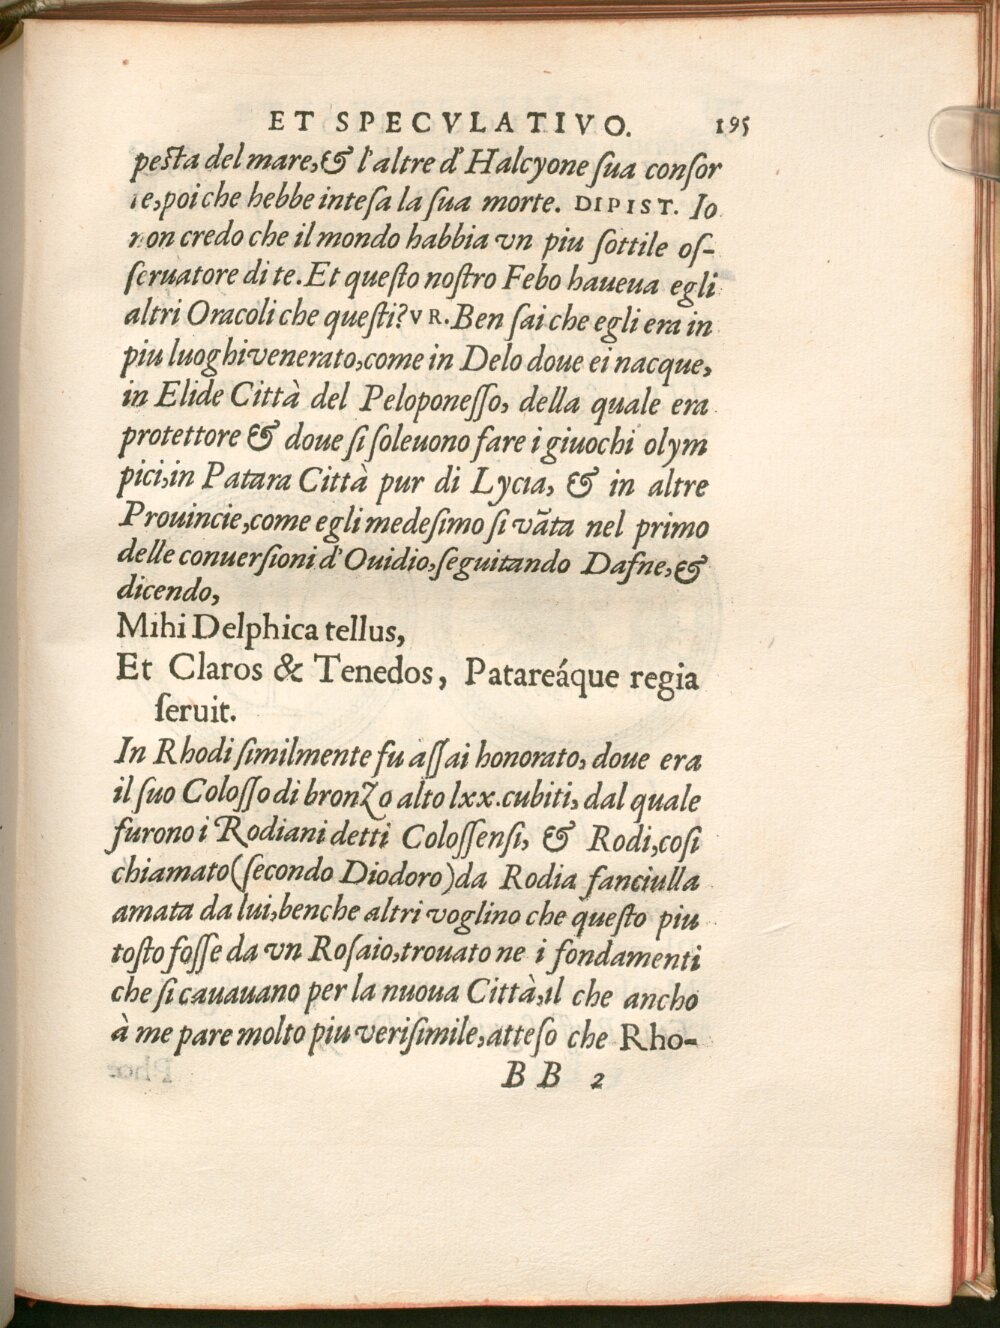 ET SPECVLATIVO. 195
pesta del mare, & l'altre d'Halcyone sua consor
te, poi che hebbe intesa la sua morte. DIPIST. Io
non credo che il mondo habbia vn piu sottile os-
seruatore di te. Et questo nostro Febo haueua egli
altri Oracoli che questi? VR. Ben sai che egli era in
piu luoghi venerato, come in Delo doue ei nacque,
in Elide Città del Peloponesso, della quale era
protettore & doue si soleuono fare i giuochi olym
pici, in Patara Città pur di Lycia, & in altre
Prouincie, come egli medesimo si vāta nel primo
delle conuersioni d'Ouidio, seguitando Dafne, &
dicendo,
Mihi Delphica tellus,
Et Claros & Tenedos, Patareáque regia
seruit.
In Rhodi similmente fu assai honorato, doue era
il suo Colosso di bronzo alto lxx. cubiti, dal quale
furono i Rodiani detti Colossensi, & Rodi, cosi
chiamato (secondo Diodoro) da Rodia fanciulla
amata da lui, benche altri voglino che questo piu
tosto fosse da vn Rosaio, trouato ne i fondamenti
che si cauauano per la nuoua Città, il che ancho
à me pare molto piu verisimile, atteso che Rho-
BB 2